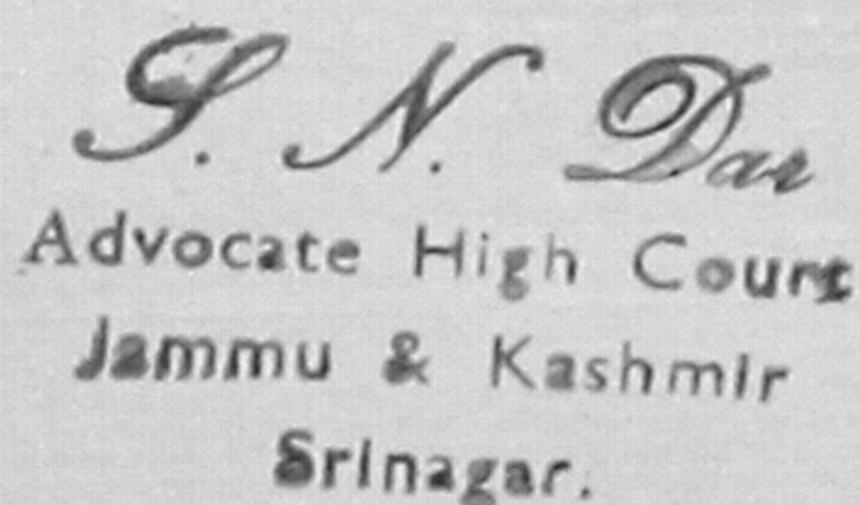 S. N. Dar
Advocate High Court
Jammu & Kashmir
Srinagar.